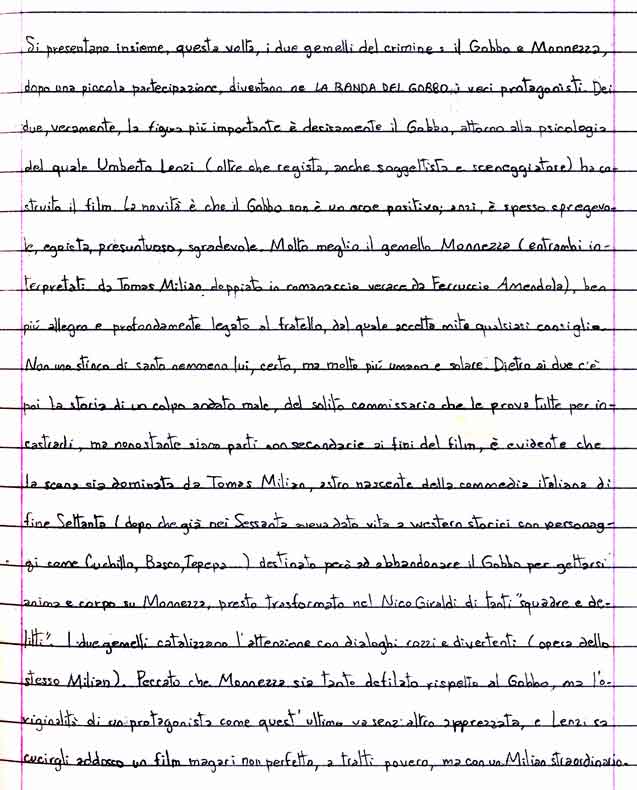 Si presentano insieme, questa volta, i due gemelli del crimine: il Gobbo e Monnezza,
dopo una piccola partecipazione, diventano ne LA BANDA DEL GOBBO i veri protagonisti. Dei
due, veramente, la figura più importante è decisamente il Gobbo, attorno alla psicologia
del quale Umberto Lenzi (oltre che regista, anche soggettista e sceneggiatore) ha co-
struito il film. La novità è che il Gobbo non è un eroe positivo; anzi, è spesso spregevo-
le, egoista, presuntuoso, sgradevole. Molto meglio il gemello Monnezza (entrambi in-
terpretati da Tomas Milian doppiato in romanaccio verace da Ferruccio Amendola), ben
più allegro e profondamente legato al fratello, dal quale accetta mite qualsiasi consiglio.
Non uno stinco di santo nemmeno lui, certo, ma molto più umano e solare. Dietro ai due c'è
poi la storia di un colpo andato male, del solito commissario che le prova tutte per in-
castrarli, ma nonostante siano parti non secondarie ai fini del film, è evidente che
la scena sia dominata da Tomas Milian, astro nascente della commedia italiana di
fine Settanta (dopo che già nei Sessanta aveva dato vita a western storici con personag-
gi come Cuchillo, Basco, Tepepa...) destinato però ad abbandonare il Gobbo per gettarsi
anima e corpo su Monnezza, presto trasformato nel Nico Giraldi di tanti "squadre e de-
litti". I due gemelli catalizzano l'attenzione con dialoghi rozzi e divertenti (opera dello
stesso Milian). Peccato che Monnezza sia tanto defilato rispetto al Gobbo, ma l'o-
riginalità di un protagonista come quest'ultimo va senz'altro apprezzata, e Lenzi sa
cucirgli addosso un film magari non perfetto, a tratti povero, ma con un Milian straordinario.